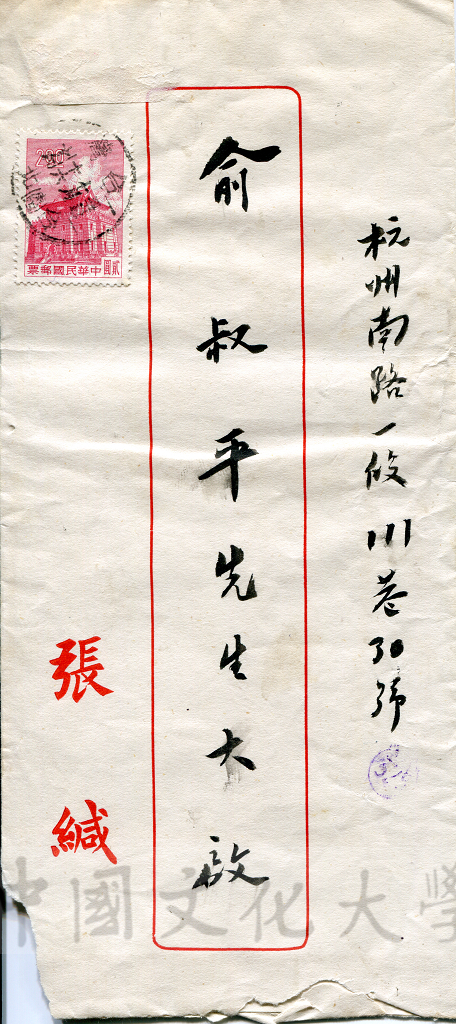 杭州南路一段111巷30號
俞叔平先生大啟
張緘
2.00
貳圓
票郵國民華中
中國文化大學